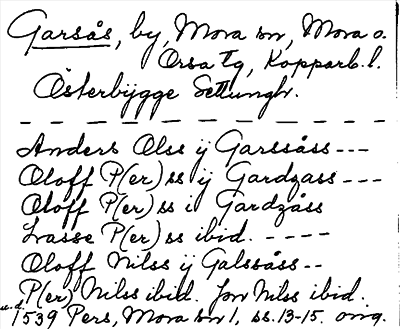 Garsås, by, Mora sn, Mora o.
Orsa tg, Kopparb. l.
Österbygge Settungh.
Anders Olss ij Garssåss ---
Oloff P(er)ss ij Gardzass ---
Oloff P(er)ss i Gardzåss
Lasse P(er)ss ibid. ----
Oloff Nilss ij Galssåss --
P(er) Nilss ibid. Jon Nilss ibid.
u.d. 1539 Pers, Mora sn 1, ss. 13-15. orig.